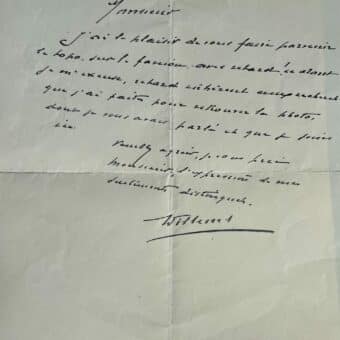 Monsieur
J'ai le plaisir de vous faire parvenir
le topo, sur le fanion avec retard, ce dont
je m'excuse, retard
que j'ai faites pour retrouver la photo,
dont je vous avais parlé et que je joins
ici
Veuillez agréer, je vous prie
Monsieur, l'expression de mes
sentiments distingués.